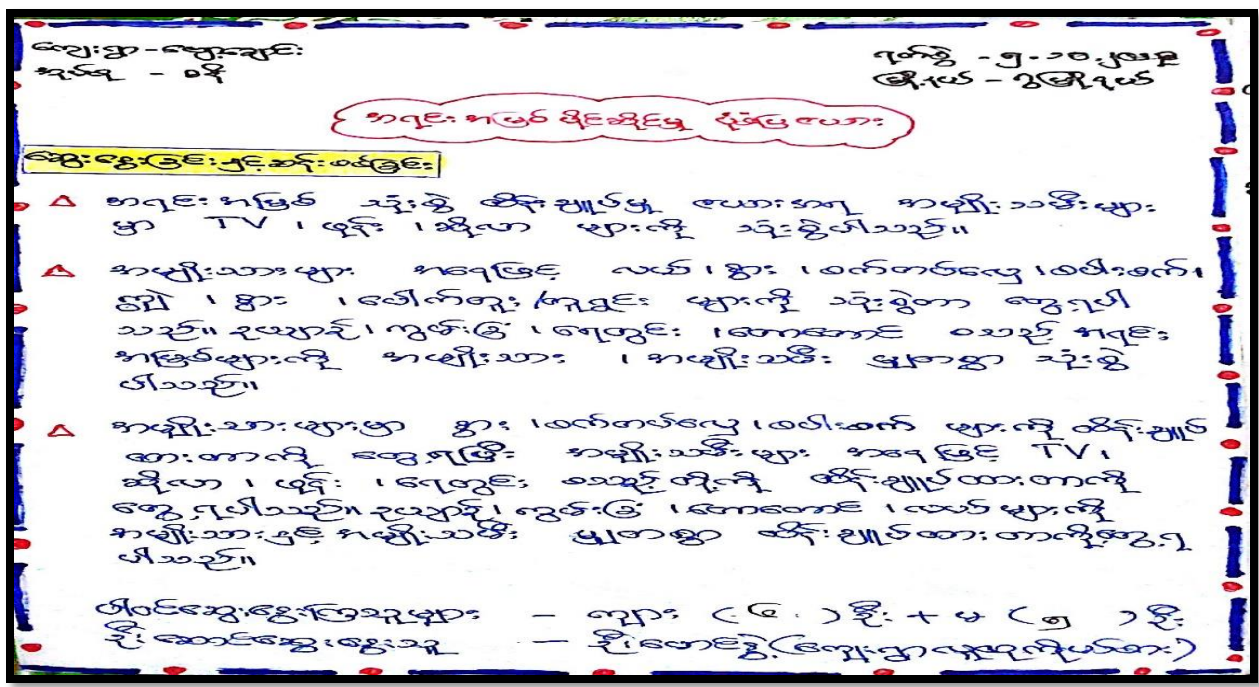 ကျေးရွာ - မျှော့ချောင်း
အုပ်စု - ခနီ
ရက်စွဲ - ၅.၁၀.၂၀၁၃
မြို့နယ် - ငွမြို့နယ်
အရင်းအမြစ် ပိုင်ဆိုင်မှု ပုံဖံပြ ဇယား
ဆွေးနွေးခြင်းနှင့်ဆန်းစစ်ခြင်း
အရင်းအမြစ် သုံးစွဲ ထိန်းချုပ်မှု ဇယားအရ အမျိုးသမီးများ
မှာ TV ၊ ဖုန်း ၊ဆိုလာ များကို သုံးစွဲပါသည်။
အမျိုးသားများ အနေဖြင့် လယ် ၊ နွား ၊စက်တပ်လှေ ၊စပါးစက်၊
၊ နွား ၊ပေါက်တူး /တူရွင်း များကို သုံးစွဲတာ တွေ့ရပါ
သည်။ ဥယျာဉ် ၊ ကွမ်းခြံ ၊ ရေတွင်း ၊တောတောင် စသည့် အရင်း
အမြစ်များကို အမျိုးသား ၊ အမျိုးသမီး မျှတစွာ သုံးစွဲ
ပါသည်။
အမျိုးသားများမှာ နွား ၊စက်တပ်လှေ ၊စပါးစက် များကို ထိန်းချုပ်
ထားတာကို တွေ့ရပြီး အမျိုးသမီးများ အနေဖြင့် TV ၊
ဆိုလာ ၊ ဖုန်း ၊ ရေတွင်း စသည့်တို့ကို ထိန်းချုပ်ထားတာကို
တွေ့ရပါသည်။ ဥယျာဉ် ၊ ကွမ်းခြံ ၊တောတောင် ၊လယ် များကို
အမျိုးသားနှင့် အမျိုးသမီး မျှတစွာ ထိန်းချုပ်ထားတာကိုတွေ့ရ
ပါသည်။
ပါဝင်ဆွေးနွေးကြသူများ - ကျား (၄) ဦး + မ (၅) ဦး
ဦးဆောင်ဆွေးနွေးသူ - ဦးဖောင်ဒွဲ့ (ကျေးရွာလူထုကိုယ်စား)